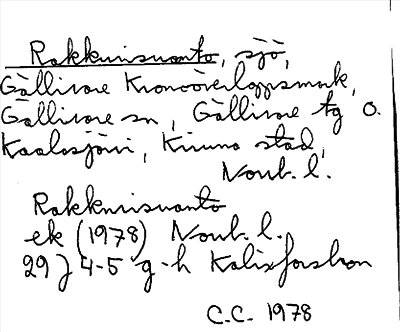 Rakkurisuanto, sjö,
Gällivare Kronoöverloppsmark,
Gällivare sn, Gällivare tg o.
Kaalasjärvi, Kiruna stad,
Norrb. l.
Rakkurisuanto
ek (1978) Norrb. l.
29J 4-5 g-h Kalixforsbron
C.C. 1978